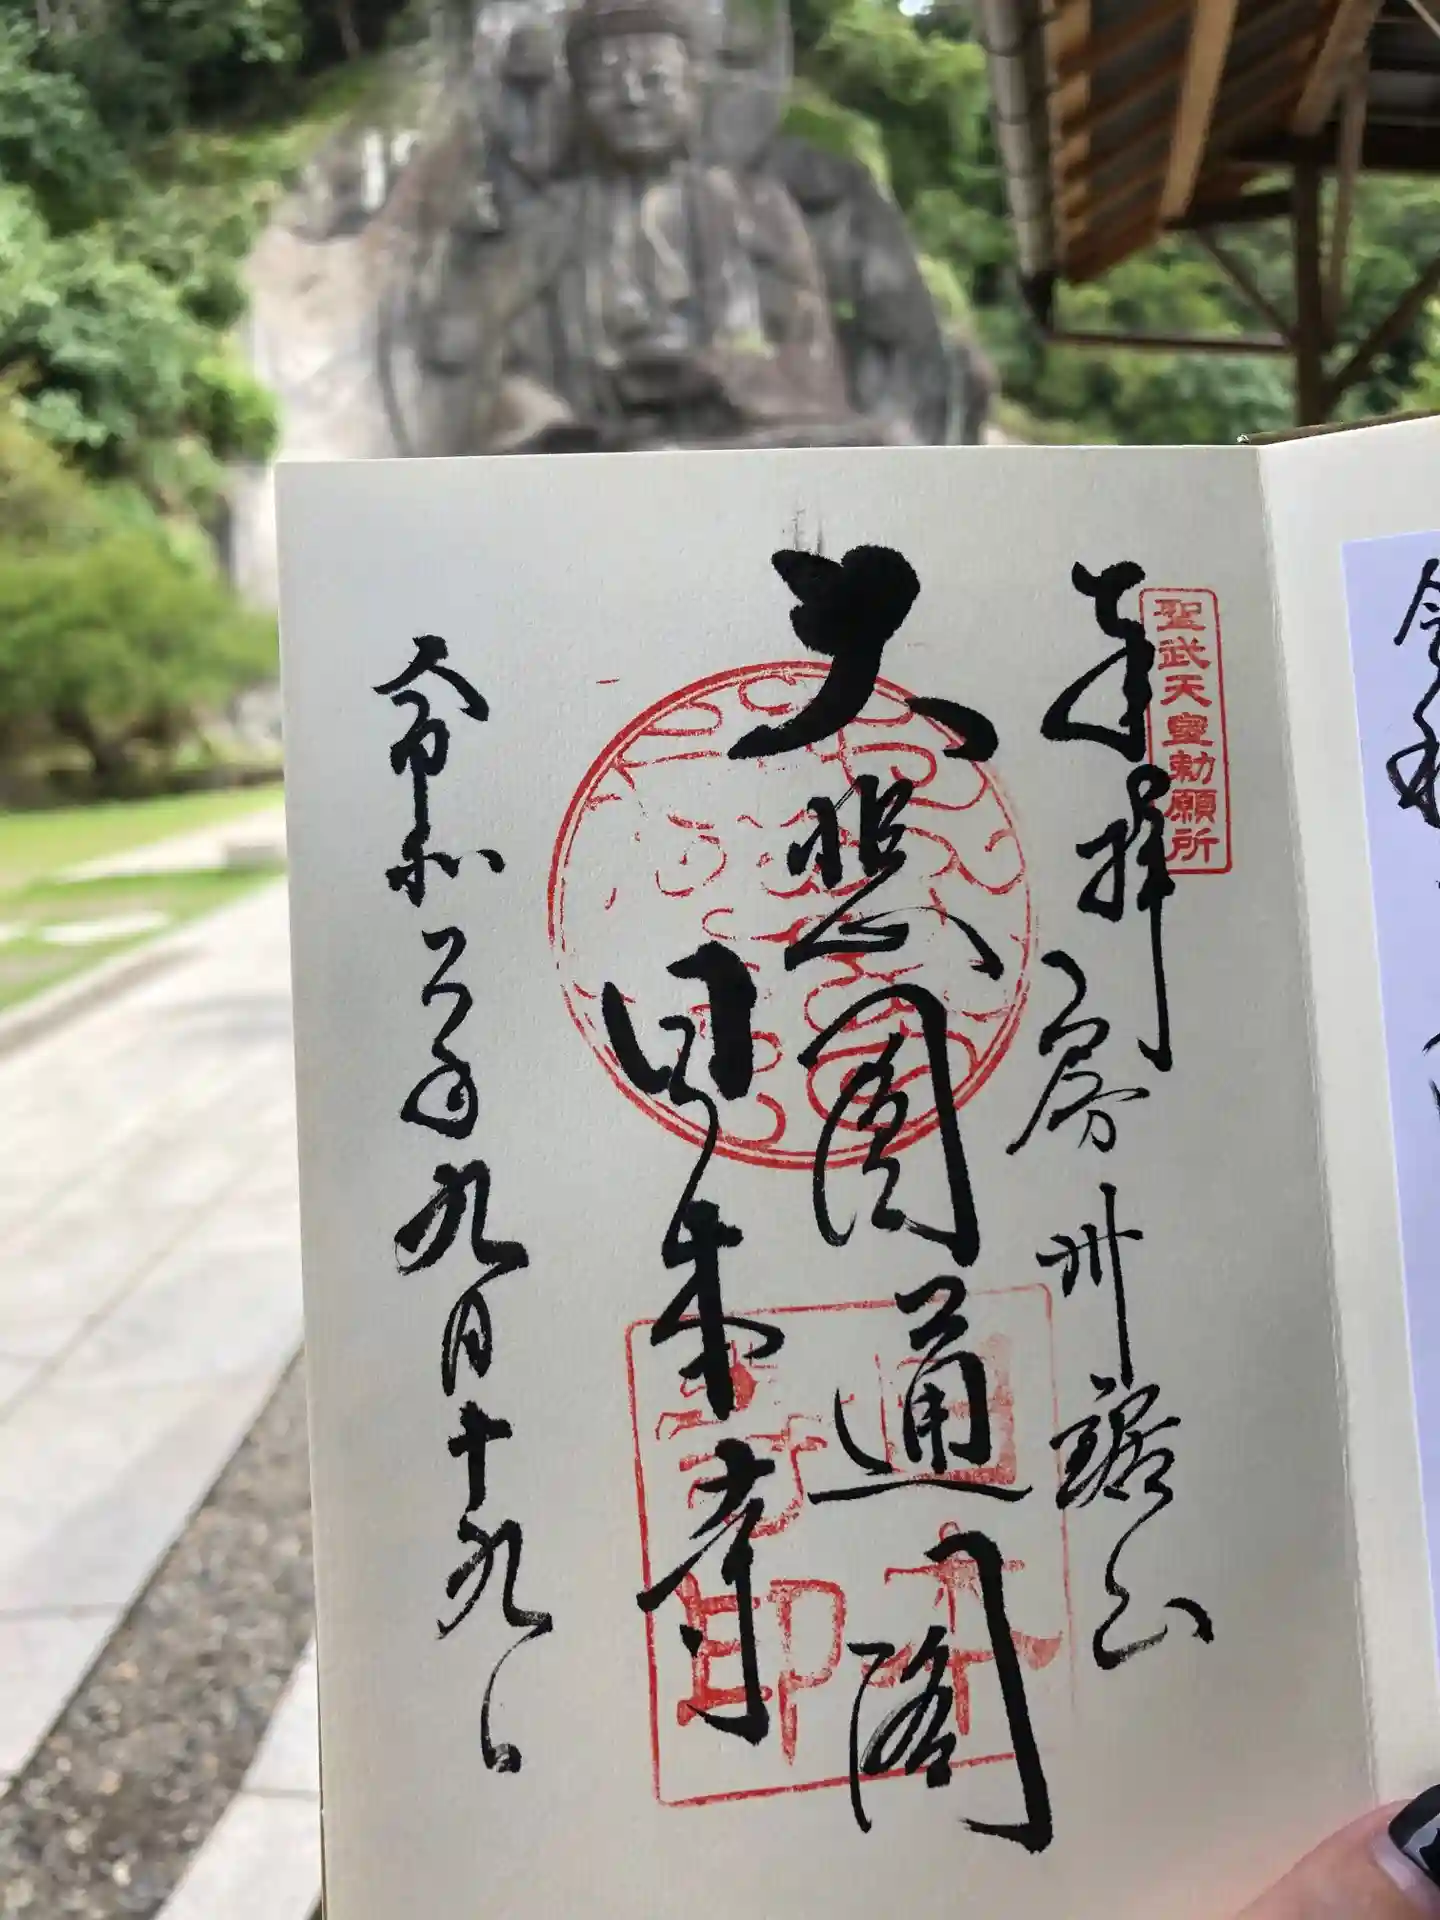 聖武天皇勅願所
奉拝 房州鋸山
大悲圓通閣
日本寺
令和六年九月十九日
令和